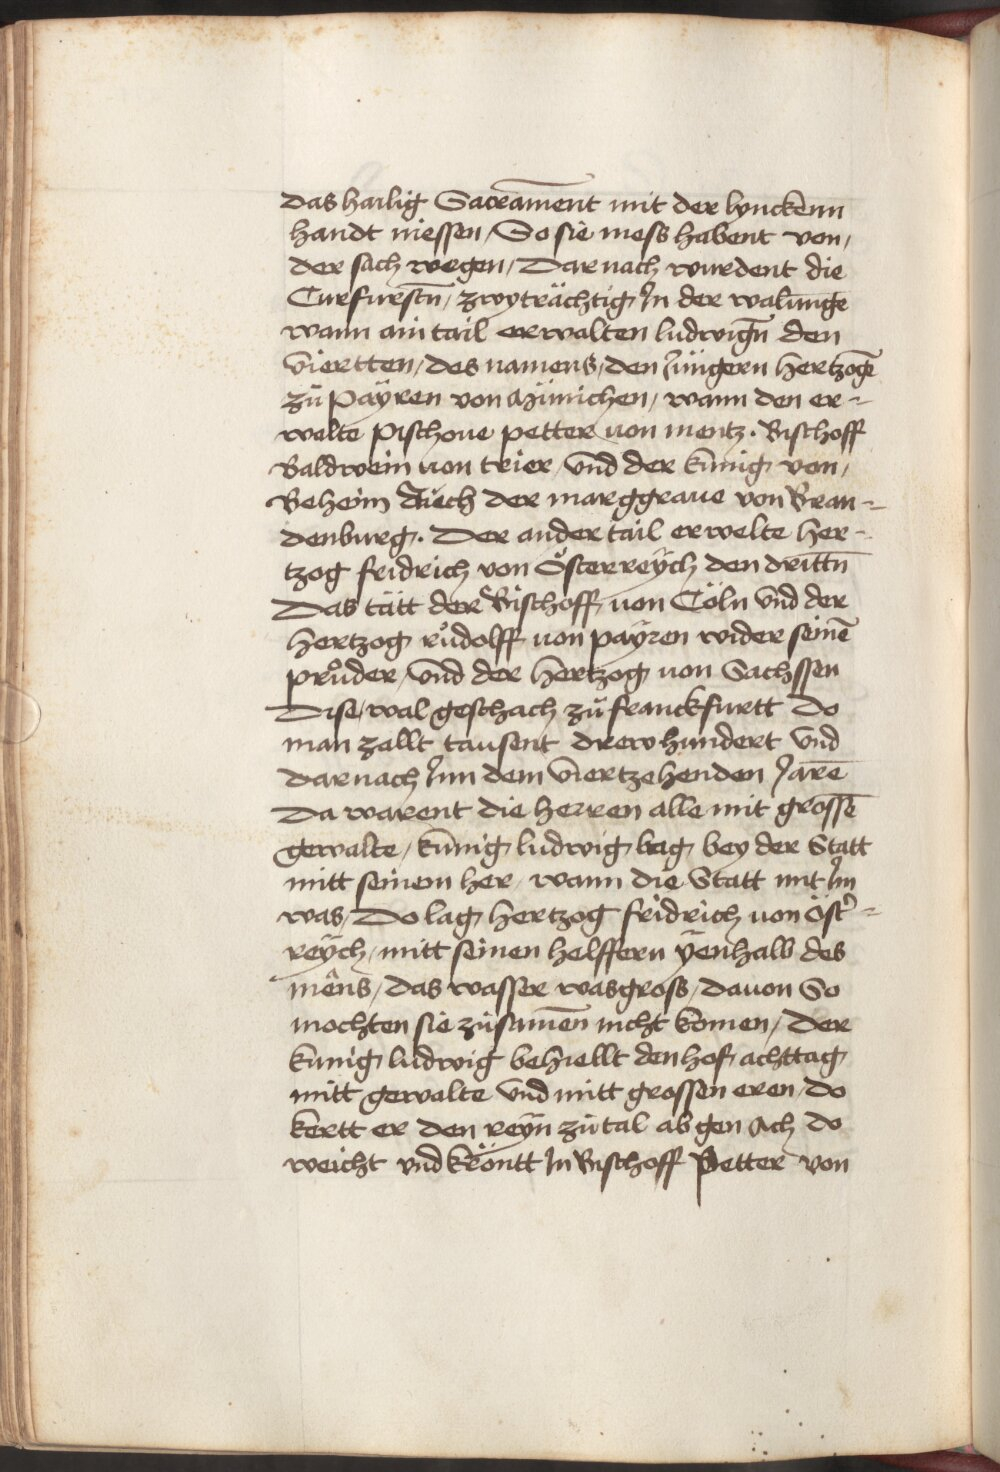 das hailig Sacrament mit der lynckenn
handt niessen / So sie mess habent von /
der sach wegen / Dar nach wurdent die
Curfursten̄ / zwyträchtig Jn der walunge
wann ain tail erwalten ludwign̄ den
viertten / des namens / den Jüngern hertzogē
zů Päyren von Münichen / wann den er -
welte pischoue petter von mentz . Bischoff
Baldwein von trier / vnd der künig von /
Beheim Auch der marggraue von Bran -
denburg . Der ander tail erwelte her -
tzog fridrich von Österreÿch den drittn̄
Das tätt der Bischoff von Cöln vnd der
hertzog růdolff von payren wider seinē
průder / vnd der hertzog von Sachssen
Dise / wal geschach zů franckfurtt Do
man zallt tausent drew hundert vnd
darnach Jnn dem viertzehenden Jarē
Da warent die herren alle mit grossē
gewalte / künnig ludwig lag bey der Statt
mitt seinem her / wann die Statt mit Jm
was / Do lag hertzog fridrich von öst̓ -
reÿch / mitt seinen helffern ÿenhalb des
mêns / das wasser was gross / dauon So
mochten sie zůsamēn nicht komen / Der
künig ludwig behiellt den hof achttag
mitt gewalte vnd mitt grossen eren / do
kertt er den reÿn zů tal ab gen Ach do
weicht vnd kröntt Jn Bischoff Petter von